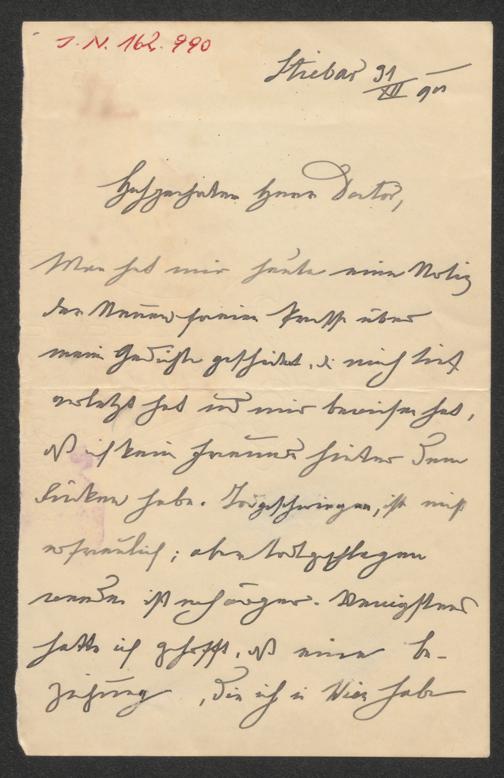 J. N. 162.990
Striebař 31/XII 901
Hochgeehrter Herr Doctor,
Man hat mir heute eine Notiz
der Neuen freien Presse über
mein Gedichte geschickt, die mich tief
verletzt hat und mir bewiesen hat,
daß ich kein Freund hinter dem
Rücken habe. Todgeschwiegen, ist nicht
erfreulich; aber todtgeschlagen
werden ist noch ärger. Wenigstens
hatte ich gehofft, daß eine Be-
ziehung, die ich in Wien habe